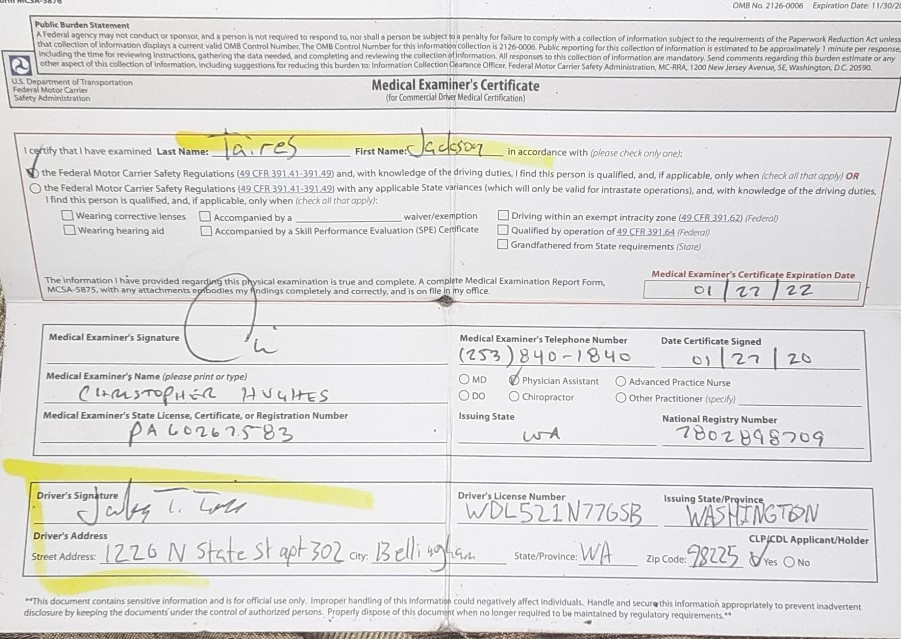 OMB No. 2126-0006 Expiration Date: 11/30/20
Public Burden Statement
A Federal agency may not conduct or sponsor, and a person is not required to respond to, nor shall a person be subject to a penalty for failure to comply with a collection of information subject to the requirements of the Paperwork Reduction Act unless
that collection of information displays a current valid OMB Control Number. The OMB Control Number for this information collection is 2126-0006. Public reporting for this collection of information is estimated to be approximately 1 minute per response,
including the time for reviewing instructions, gathering the data needed, and completing and reviewing the collection of information. All responses to this collection of information are mandatory. Send comments regarding this burden estimate or any
other aspect of this collection of information, including suggestions for reducing this burden to: Information Collection Clearance Officer, Federal Motor Carrier Safety Administration, MC-RRA, 1200 New Jersey Avenue, SE, Washington, D.C. 20590.
U.S. Department of Transportation
Federal Motor Carrier
Safety Administration
Medical Examiner's Certificate
(for Commercial Driver Medical Certification)
I certify that I have examined Last Name: Taires First Name: Jackson in accordance with (please check only one):
the Federal Motor Carrier Safety Regulations (49 CFR 391.41-391.49) and, with knowledge of the driving duties, I find this person is qualified, and, if applicable, only when (check all that apply) OR
the Federal Motor Carrier Safety Regulations (49 CFR 391.41-391.49) with any applicable State variances (which will only be valid for intrastate operations), and, with knowledge of the driving duties,
I find this person is qualified, and, if applicable, only when (check all that apply):
Wearing corrective lenses Accompanied by a waiver/exemption Driving within an exempt intracity zone (49 CFR 391.62) (Federal)
Wearing hearing aid Accompanied by a Skill Performance Evaluation (SPE) Certificate Qualified by operation of 49 CFR 391.64 (Federal)
Grandfathered from State requirements (State)
The information I have provided regarding this physical examination is true and complete. A complete Medical Examination Report Form,
MCSA-5875, with any attachments embodies my findings completely and correctly, and is on file in my office.
Medical Examiner's Certificate Expiration Date
01/27/22
Medical Examiner's Signature
Medical Examiner's Telephone Number Date Certificate Signed
(253) 840-1840 01/27/20
Medical Examiner's Name (please print or type)
CHRISTOPHER HUGHES
MD Physician Assistant Advanced Practice Nurse
DO Chiropractor Other Practitioner (specify)
Medical Examiner's State License, Certificate, or Registration Number
PA60267583
Issuing State National Registry Number
WA 7802898709
Driver's Signature
Driver's License Number Issuing State/Province
WDL521N77GSB WASHINGTON
Driver's Address
CLP/CDL Applicant/Holder
Street Address: 1226 N State St apt 302 City: Bellingham State/Province: WA Zip Code: 98225 Yes No
**This document contains sensitive information and is for official use only. Improper handling of this information could negatively affect individuals. Handle and secure this information appropriately to prevent inadvertent
disclosure by keeping the documents under the control of authorized persons. Properly dispose of this document when no longer required to be maintained by regulatory requirements.**